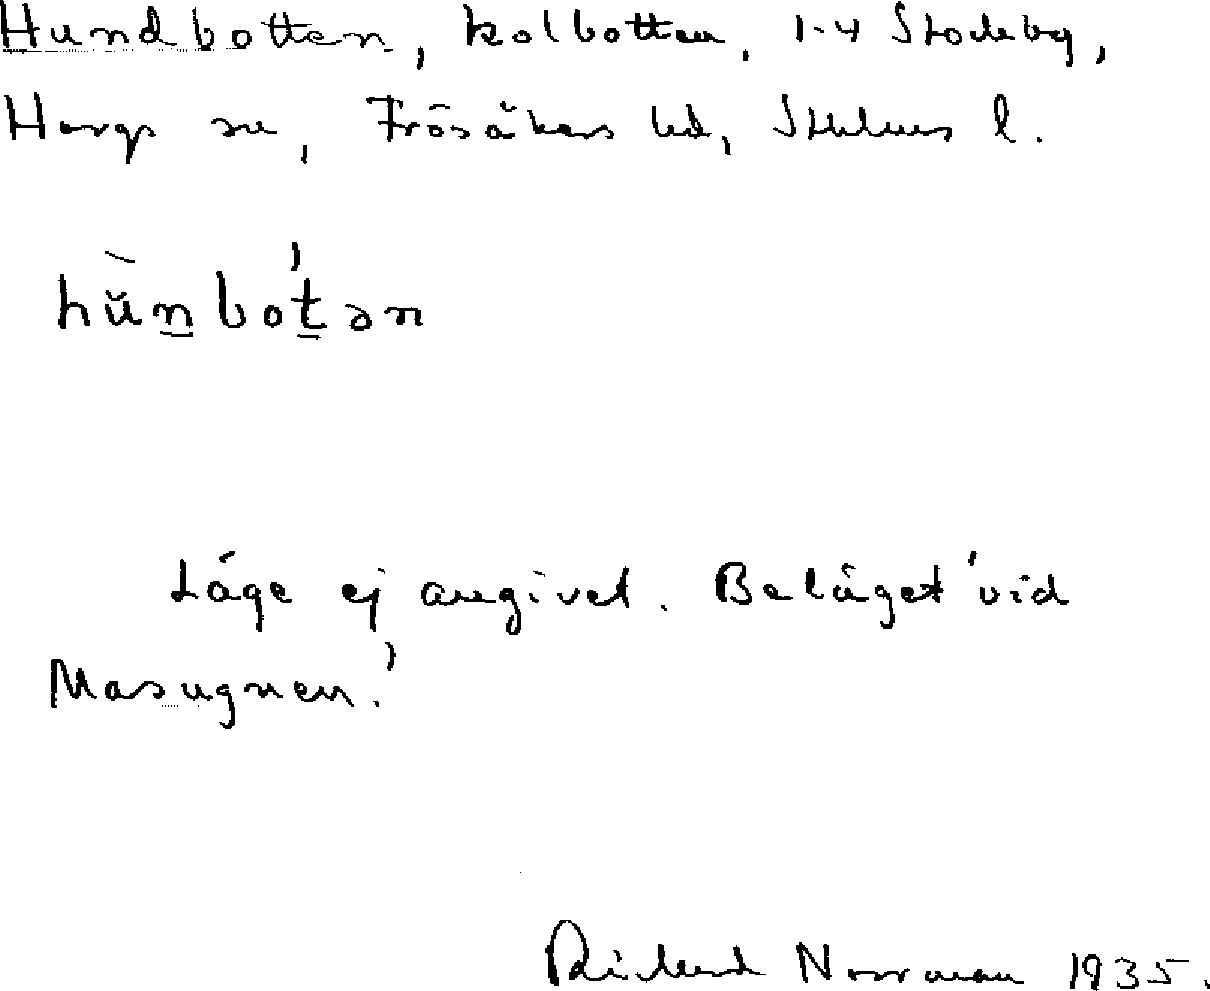 Hundbotten, kolbotten, 1-4 Stockby,
Hargs sn, Frösåkers hd, Sthlms l.
hŭ̀n̲bo't̲ən
Läge ej angivet. Beläget 'vid
Masugnen.'
Rickard Norrman 1935.